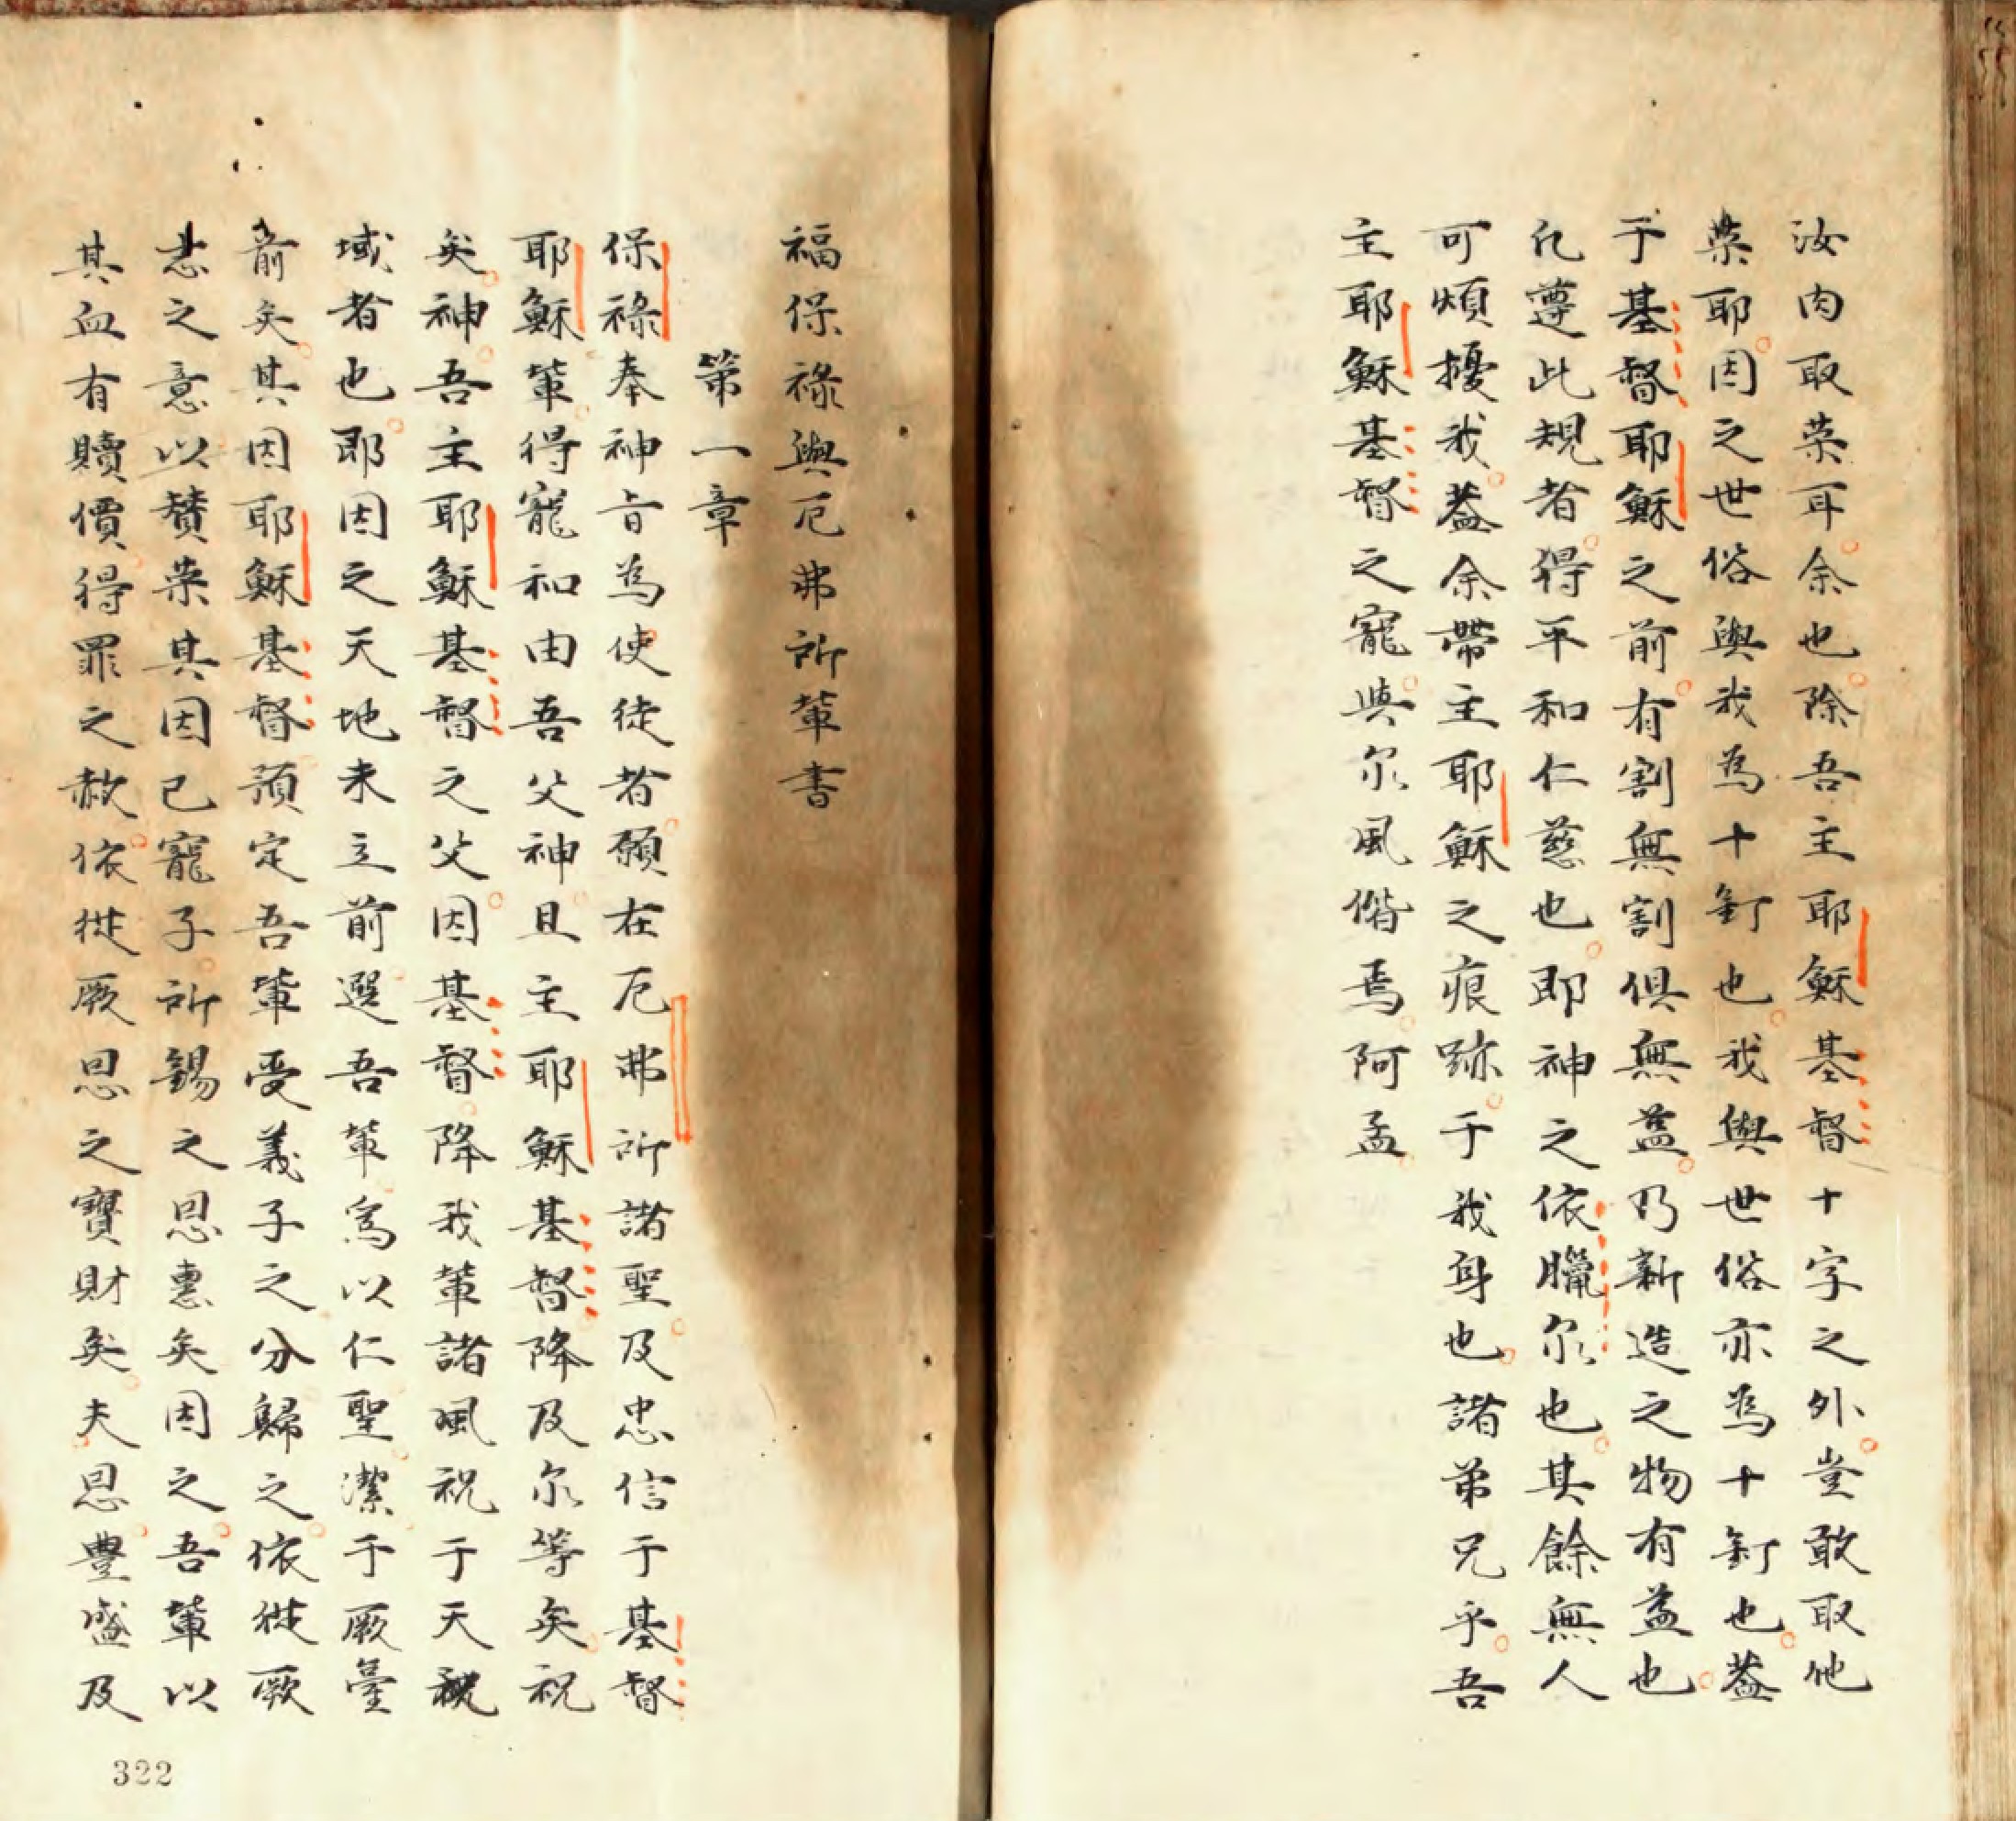 汝肉取荣耳余也除吾主耶穌基督十字之外豈敢取他
荣耶因之世俗與我為十釘也我與世俗亦為十釘也蓋
于基督耶穌之前有割無割俱無益乃新造之物有益也
凢遵此規者得平和仁慈也即神之依臘尔也其餘無人
可煩擾我蓋余帶主耶穌之痕跡于我身也諸弟兄乎吾
主耶穌基督之寵與尔風偕焉阿孟
福保祿與厄弗所輩書
第一章
保祿奉神旨為使徒者願在厄弗所諸聖及忠信于基督
耶穌輩得寵和由吾父神且主耶穌基督降及尔等矣祝
矣神吾主耶穌基督之父因基督降我輩諸風祝于天祝
域者也即因之天地未立前選吾輩為以仁聖潔于厥臺
前矣其因耶穌基督預定吾輩受義子之分歸之依從厥
意之意以賛荣其因己寵子所錫之恩惠矣因之吾輩以
其血有贖價得罪之赦依從厥恩之寶財矣夫恩豐盛及
322